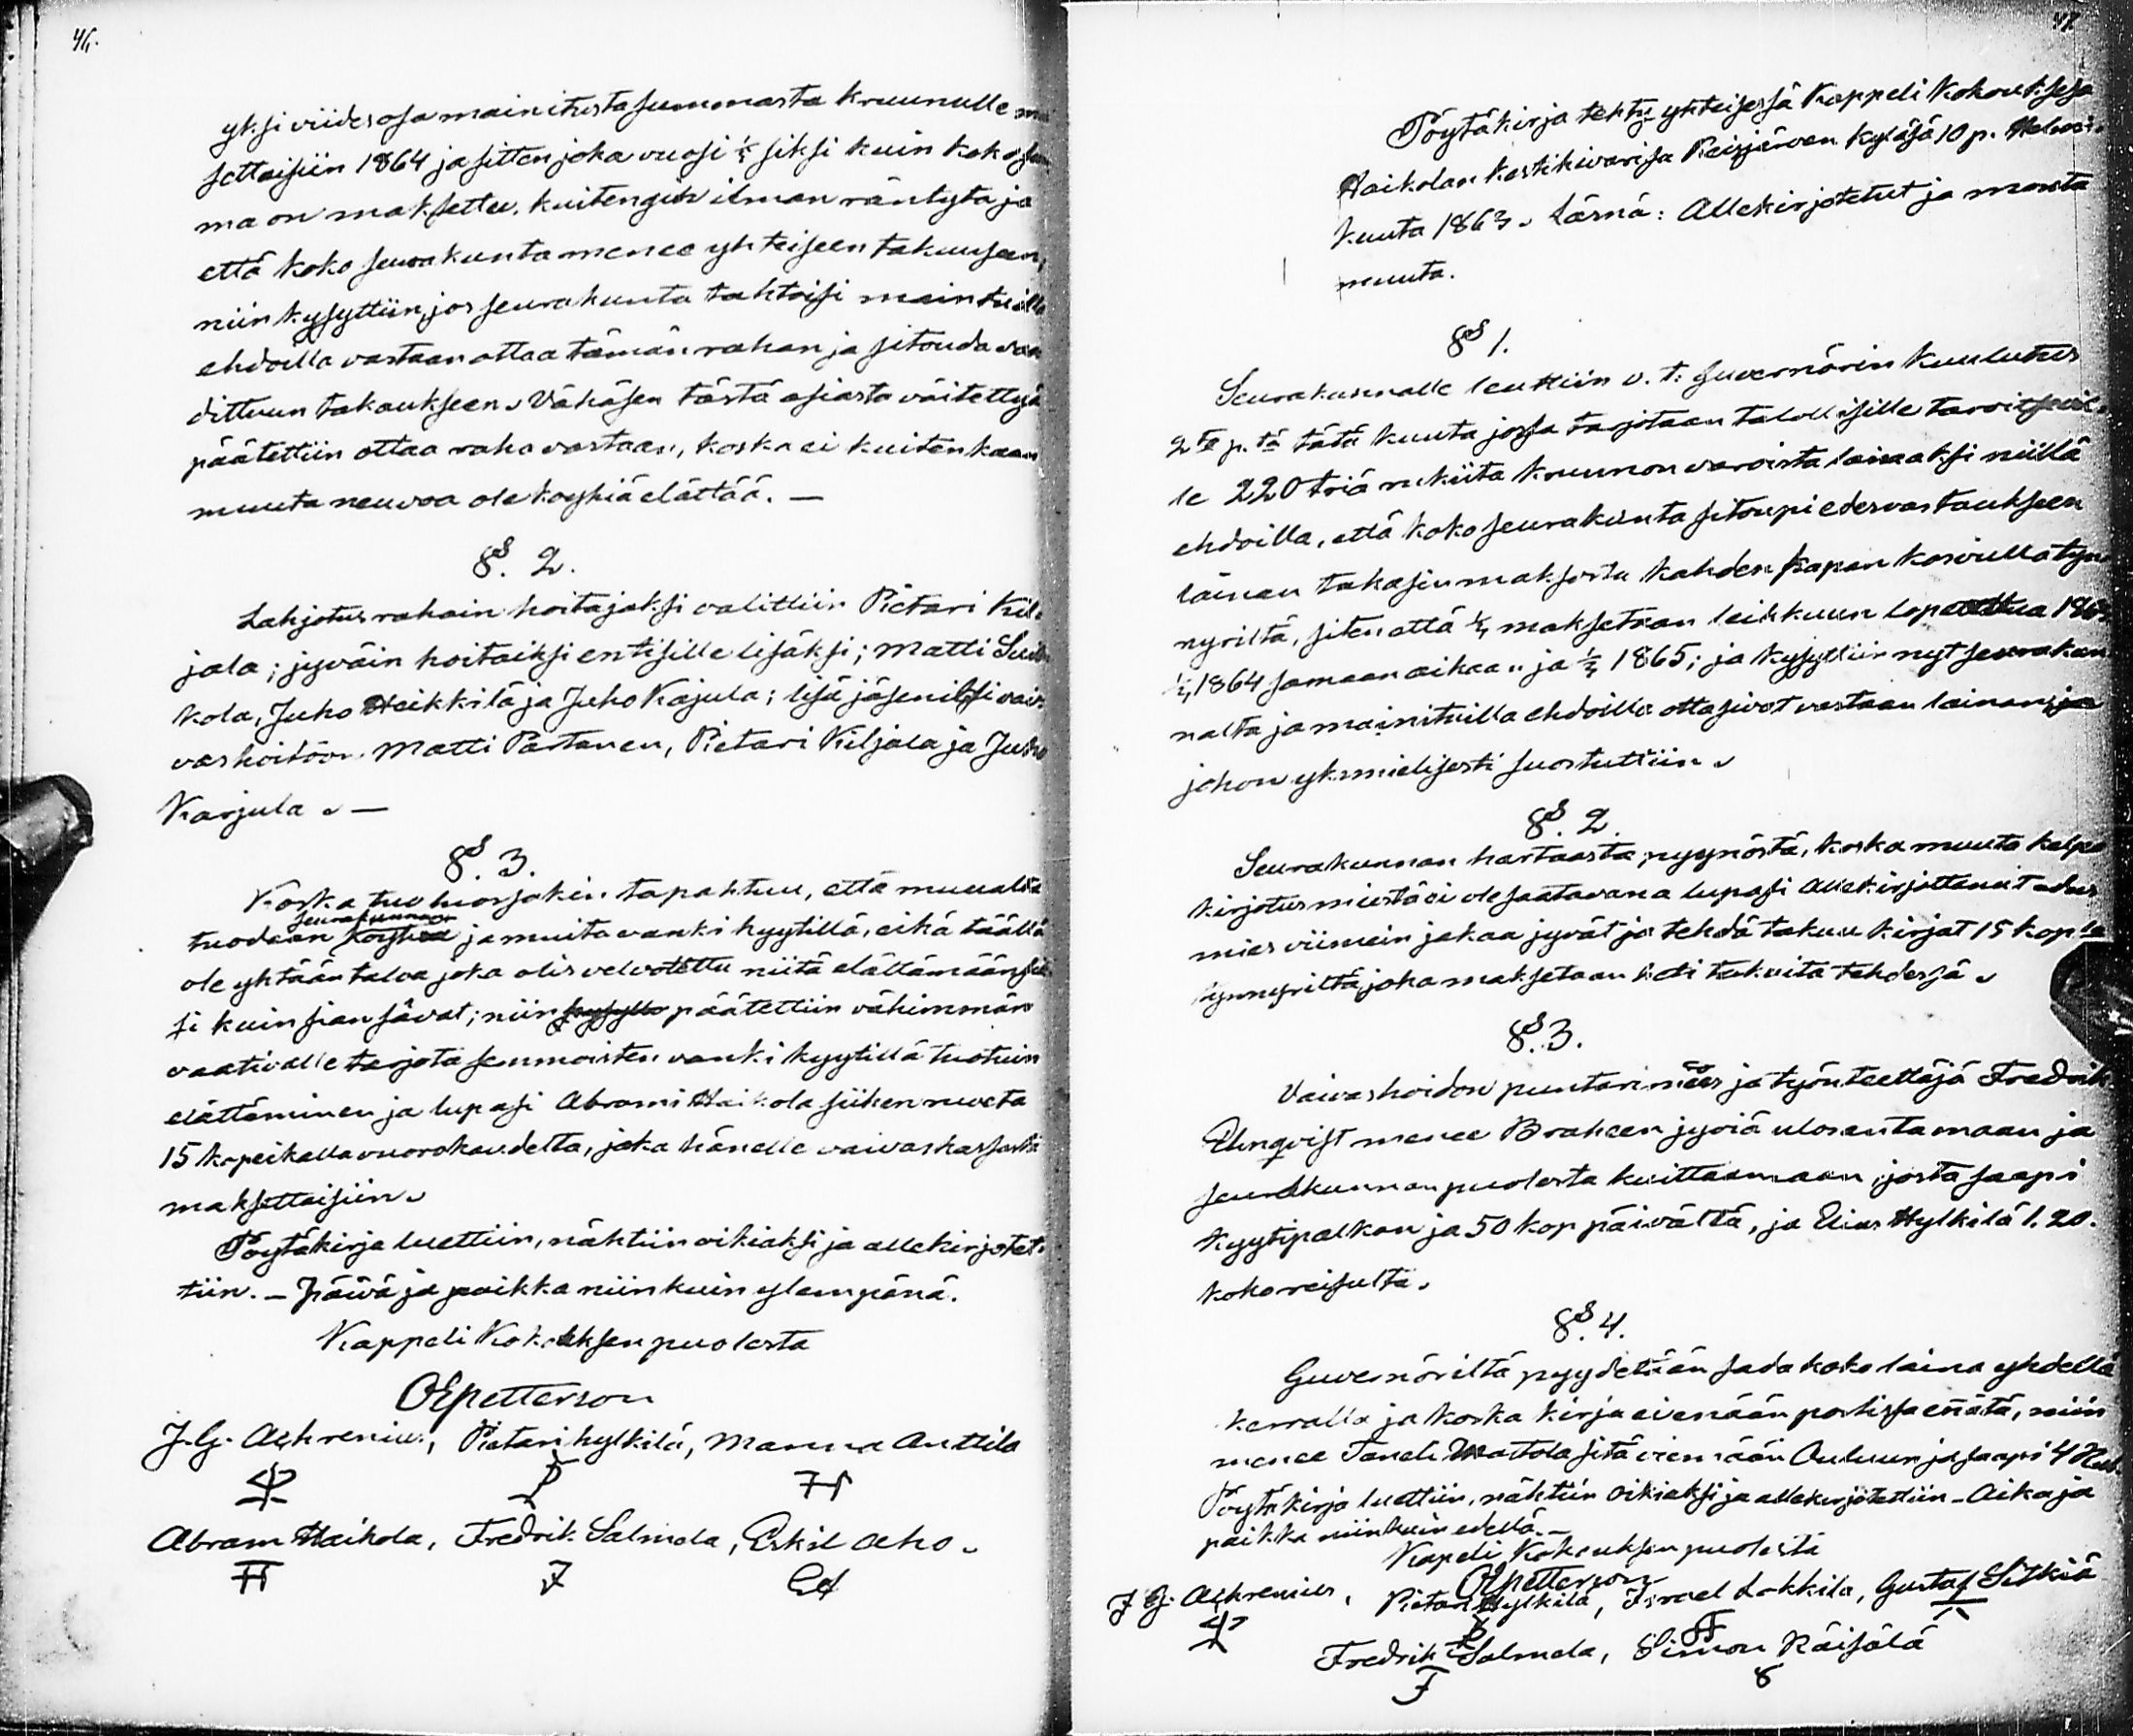 46.
yksi viides osa mainitusta summasta kruunulle
settaisiin 1864 ja sitten joka vuosi 1/5 siksi kuin koko sum
ma on maksettu, kuitengin ilman räntytä ja
että koko seurakunta menee yhteiseen takuuseen,
niin kysyttiin, jos seurakunta tahtoisi mainituilla
ehdoilla vastaan ottaa tämän rahan ja sitouda vaa
dittuun takaukseen. Vähäsen tästä asiasta väitettyä
päätettiin ottaa raha vastaan, koska ei kuitenkaan
muuta neuvoa ole köyhiä elättää. —
§. 2.
Lahjotus rahain hoitajaksi valittiin Pietari Kil
jala; jyväin hoitaiksi entisille lisäksi; Matti
kola, Juho Heikkilä ja Juho Kajula; lisä jäseniksi vai
vashoitoon. Matti Partanen, Pietari Kiljala ja Juho
Karjula. —
§. 3.
Koska tuo tapahtuu, että muualta
seurakunnan
tuodaan köyhiä ja muita vanki kyytillä, eikä täällä
ole yhtään taloa joka olis velvotettu niitä elättämään sik
si kuin sian sávat; niin päätettiin vähimmän
vaativalle tarjota semmoisten vanki kyytillä tuotuin
elättäminen ja lupasi Abrami Haikola siihen ruveta
15 kopeikalla vuorokaudelta, joka hänelle vaivaskassasta
maksettaisiin.
Pöytäkirja luettiin, nähtiin oikiaksi ja allekirjotet
tiin. — Päivä ja paikka niinkuin ylempänä.
Kappeli Kokouksen puolesta
OEpetterson
J. G. Achrenius, Pietari hylkilä, Manna Anttila
P H
Abram Haikola, Fredrik Salmela, Erkil Aho.
H F EA
47.
Pöytäkirja tehty yhteisessä Kappeli Kokouksesa
Haikolan Kestikivarisa Reisjärven Kyläsä 10 p. Helmi
kuuta 1863. Läsnä: Allekirjotetut ja monta
muuta.
§ 1.
Seurakunnalle luettiin v. t: Guvernörin Kuulutus
2ta p. tä tätä kuuta jossa tarjotaan talollisille tarvitsevil
le 220 triä rukiita Kruunon varoista lainaksi niillä
ehdoilla, että koko seurakunta sitoupi edesvastaukseen
lainan takasin maksosta kahden kapan kasvulla tyn
nyriltä, siten että maksetaan leikkuun lopetettua 1863
1864 samaan aikaan ja 1865; ja kysyttiin nyt seurakun
nalta ja mainituilla ehdoilla ottasivat vastaan lainan; ja
johon yksmielisesti suostuttiin.
§. 2.
Seurakunnan hartaasta pyynöstä, koska muuta kelpo
kirjotus miestä ei ole saatavana lupasi allekirjottanut
mies viimein jakaa jyvät ja tehdä takuu kirjat 15 kop la
tynnyriltä, joka maksetaan heti takuita tehdessä.
§. 3.
Vaivashoidon puntari mies ja työn teettäjä Fredrik
Elmqvist menee Braheen jyviä ulosantamaan ja
seurakunnan puolesta kuittaamaan, josta saapi
kyytipalkan ja 50 kop päivältä, ja Elias Hylkilä 1. 20.
koko reisulta.
§. 4.
Guvernöriltä pyydetään sada koko laina yhdellä
kerralla ja koska kirja ei enään postissa ennätä, niin
menee Taneli Mattola sitä viemään Ouluun ja saapi 4 Rub.
Pöytäkirja luettiin, nähtiin oikiaksi ja allekirjotettiin — Aika ja
paikka niinkuin edellä. —
Kapeli Kokouksen puolesta
OEpetterson
J G. Achrenius, Pietari Hylkilä, Israel Lakkila, Gustaf Sitkiä
P H
Fredrik Salmela, Simon Räisälä
F 8